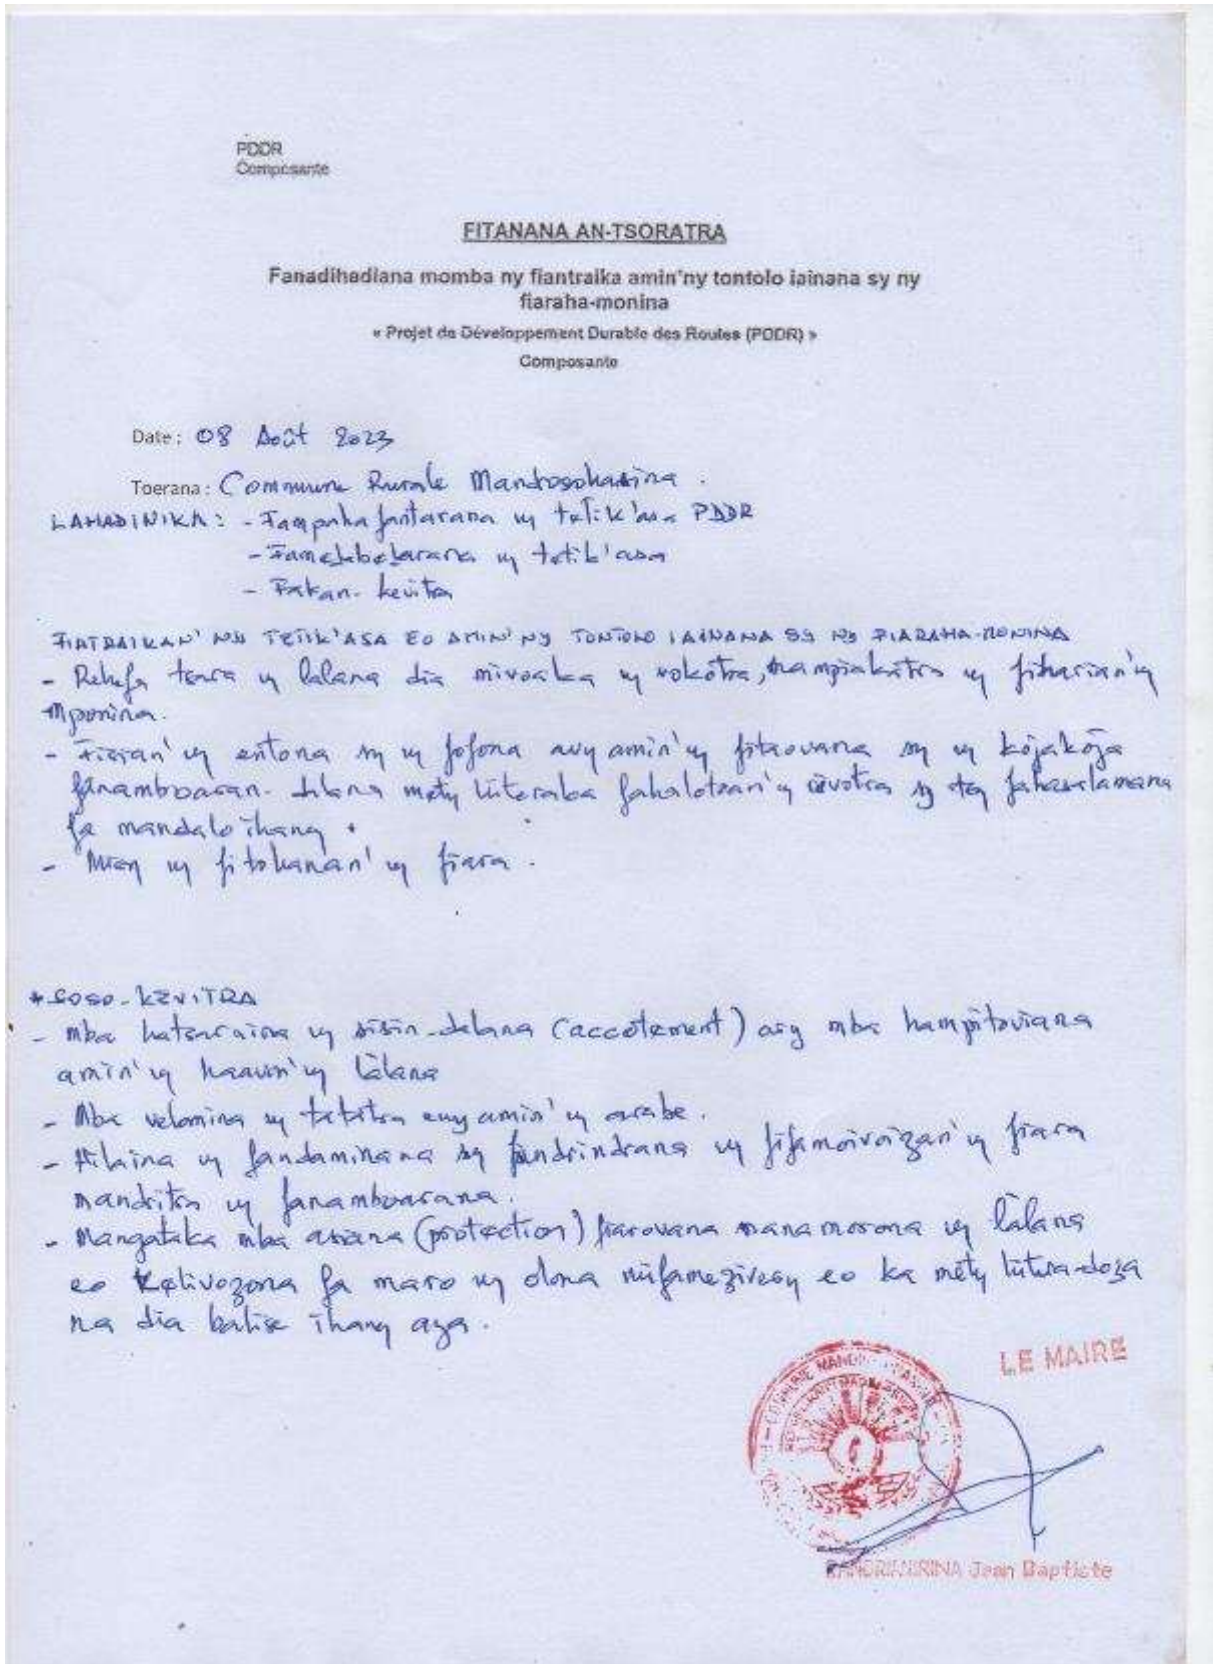 PDDR
Composante
FITANANA AN-TSORATRA
Fanadihadiana momba ny fiantraika amin'ny tontolo iainana sy ny
fiaraha-monina
« Projet de Développement Durable des Routes (PDDR) »
Composante
Date : 08 Août 2023
Toerana : Commune Rurale Mandrosohasina .
LAHADINIKA : - Fampahafantarana ny tetik'asa PDDR
- Famelabelarana ny tetik'asa
- Fakan-kevitra
FIATRAIKAN' NY TETIK'ASA EO AMIN'NY TONTOLO IAINANA SY NY FIARAHA-MONINA
- Rehefa tsara ny lalana dia mivoaka ny vokatra, mampiakatra ny fiharian'ny
mponina.
- ny entona sy ny fofona avy amin'ny fitaovana sy ny kojakoja
fanamboaran-dalana mety hiteraka fahalotoan'ny rivotra sy ny fahasalamana
fa mandalo ihany .
- ny fitohanan'ny fiara .
* SOSO-KEVITRA
- mba hatsaraina ny sisin-dalana (accotement) ary mba hampitoviana
amin'ny haavon'ny làlana
- Mba velomina ny tatatra eny amin'ny arabe.
- Ilaina ny fandaminana sy fandrindrana ny fifamoivoizan'ny fiara
mandritra ny fanamboarana.
- Mangataka mba asiana (protection) fiarovana manamorona ny làlana
eo fa maro ny olona eo ka mety hitera-doza
na dia balise ihany aza.
LE MAIRE
COMMUNE
Jean Baptiste